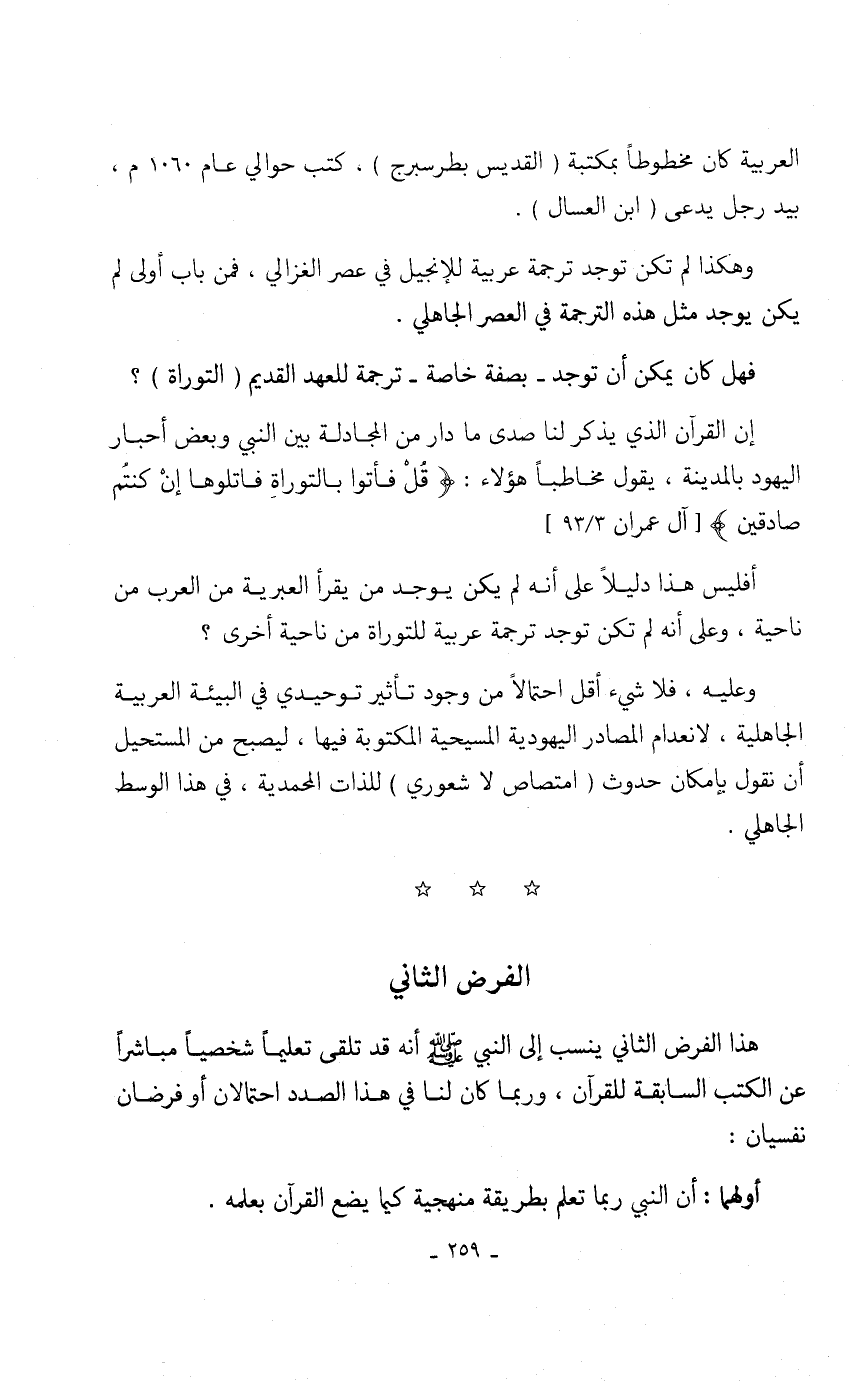 العربية كان مخطوطاً بمكتبة ( القديس بطرسبرج ) ، كتب حوالي عـام ١٠٦٠ م ،
بيد رجل يدعى ( ابن العسال ) .
وهكذا لم تكن توجد ترجمة عربية للإنجيل في عصر الغزالي ، فمن باب أولى لم
يكن يوجد مثل هذه الترجمة في العصر الجاهلي .
فهل كان يمكن أن توجد ـ بصفة خاصة ـ ترجمة للعهد القديم ( التوراة ) ؟
إن القرآن الذي يذكر لنا صدى ما دار من المجـادلـة بين النبي وبعض أحبـار
اليهود بالمدينة ، يقول مخـاطبـاً هؤلاء : ﴿ قُلْ فـأتوا بـالتوراةِ فـاتلوهـا إنْ كنتُم
صادقين ﴾ [ آل عمران ٩٣/٣ ]
أفليس هـذا دليـلاً على أنـه لم يكن يـوجـد من يقرأ العبريـة من العرب من
ناحية ، وعلى أنه لم تكن توجد ترجمة عربية للتوراة من ناحية أخرى ؟
وعليـه ، فلا شيء أقل احتمالاً من وجود تـأثير تـوحيـدي في البيئـة العربيـة
الجاهلية ، لانعدام المصادر اليهودية المسيحية المكتوبة فيها ، ليصبح من المستحيل
أن نقول بإمكان حدوث ( امتصاص لا شعوري ) للذات المحمدية ، في هذا الوسط
الجاهلي .
☆ ☆ ☆
الفرض الثاني
هذا الفرض الثاني ينسب إلى النبي ﷺ أنه قد تلقى تعليمـاً شخصيـاً مبـاشراً
عن الكتب السـابقـة للقرآن ، وربمـا كان لنـا في هـذا الصـدد احتمالان أو فرضـان
نفسيان :
أولهما : أن النبي ربما تعلم بطريقة منهجية كيما يضع القرآن بعلمه .
ـ ٢٥٩ ـ